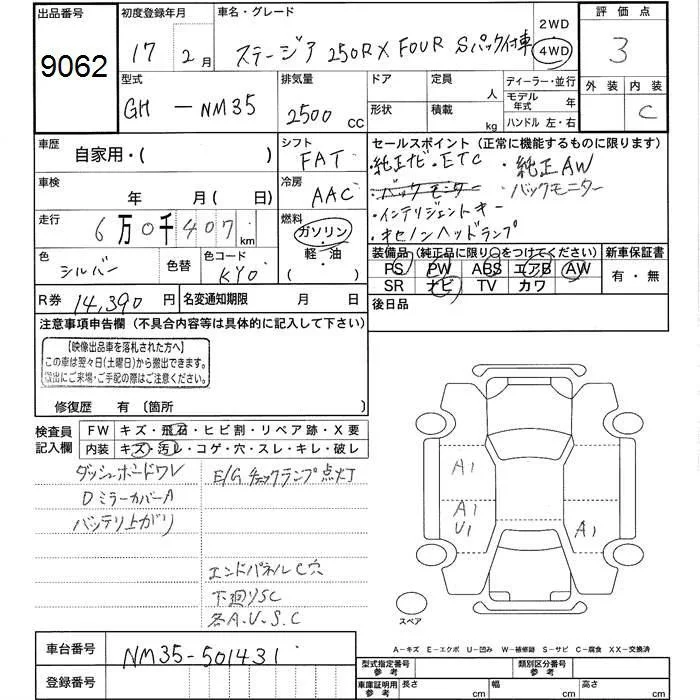 出品番号
9062
初度登録年月
17 2月
車名・グレード
ステージア 250RX FOUR Sパック付車
2WD
4WD
評価点
3
外装 内装
C
型式
GH-NM35
排気量
2500 cc
ドア
形状
定員
人
積載
kg
ディーラー・並行
モデル年式 年
ハンドル 左・右
車歴
自家用・( )
シフト
FAT
車検
年 月( 日)
冷房
AAC
走行
6万0千407km
燃料
ガソリン
・
軽・油
( )
色
シルバー
色替
色コード
KY0
R券 14,390円
名変通知期限 月 日
セールスポイント(正常に機能するものに限ります)
・純正ナビ・ETC ・純正AW
・バックモニター ・バックモニター
・インテリジェントキー
・キセノンヘッドランプ
装備品(純正品に限り○をつけてください)
PS PW ABS エアB AW
SR ナビ TV カワ
新車保証書
有・無
後日品
注意事項申告欄(不具合内容等は具体的に記入して下さい)
【映像出品車を落札された方へ】
この車は翌々日(土曜日)から搬出できます。
搬出にご来場・ご手配の際はご注意ください。
修復歴 有〔箇所 〕
検査員記入欄
FW キズ・飛石・ヒビ割・リペア跡・X要
内装 キズ・汚レ・コゲ・穴・スレ・キレ・破レ
ダッシュボードワレ
Dミラーカバー A
バッテリ上がり
E/Gチェックランプ点灯
エンドパネルC穴
下廻りSC
各A.U.S.C
A1
A1
U1
A1
スペア
A-キズ E-エクボ U-凹み W-補修跡 S-サビ C-腐食 XX-交換済
車台番号
NM35-501431
登録番号
型式指定番号
参考
類別区分番号
参考
車庫証明用
参考
長さ cm
幅 cm
高さ cm